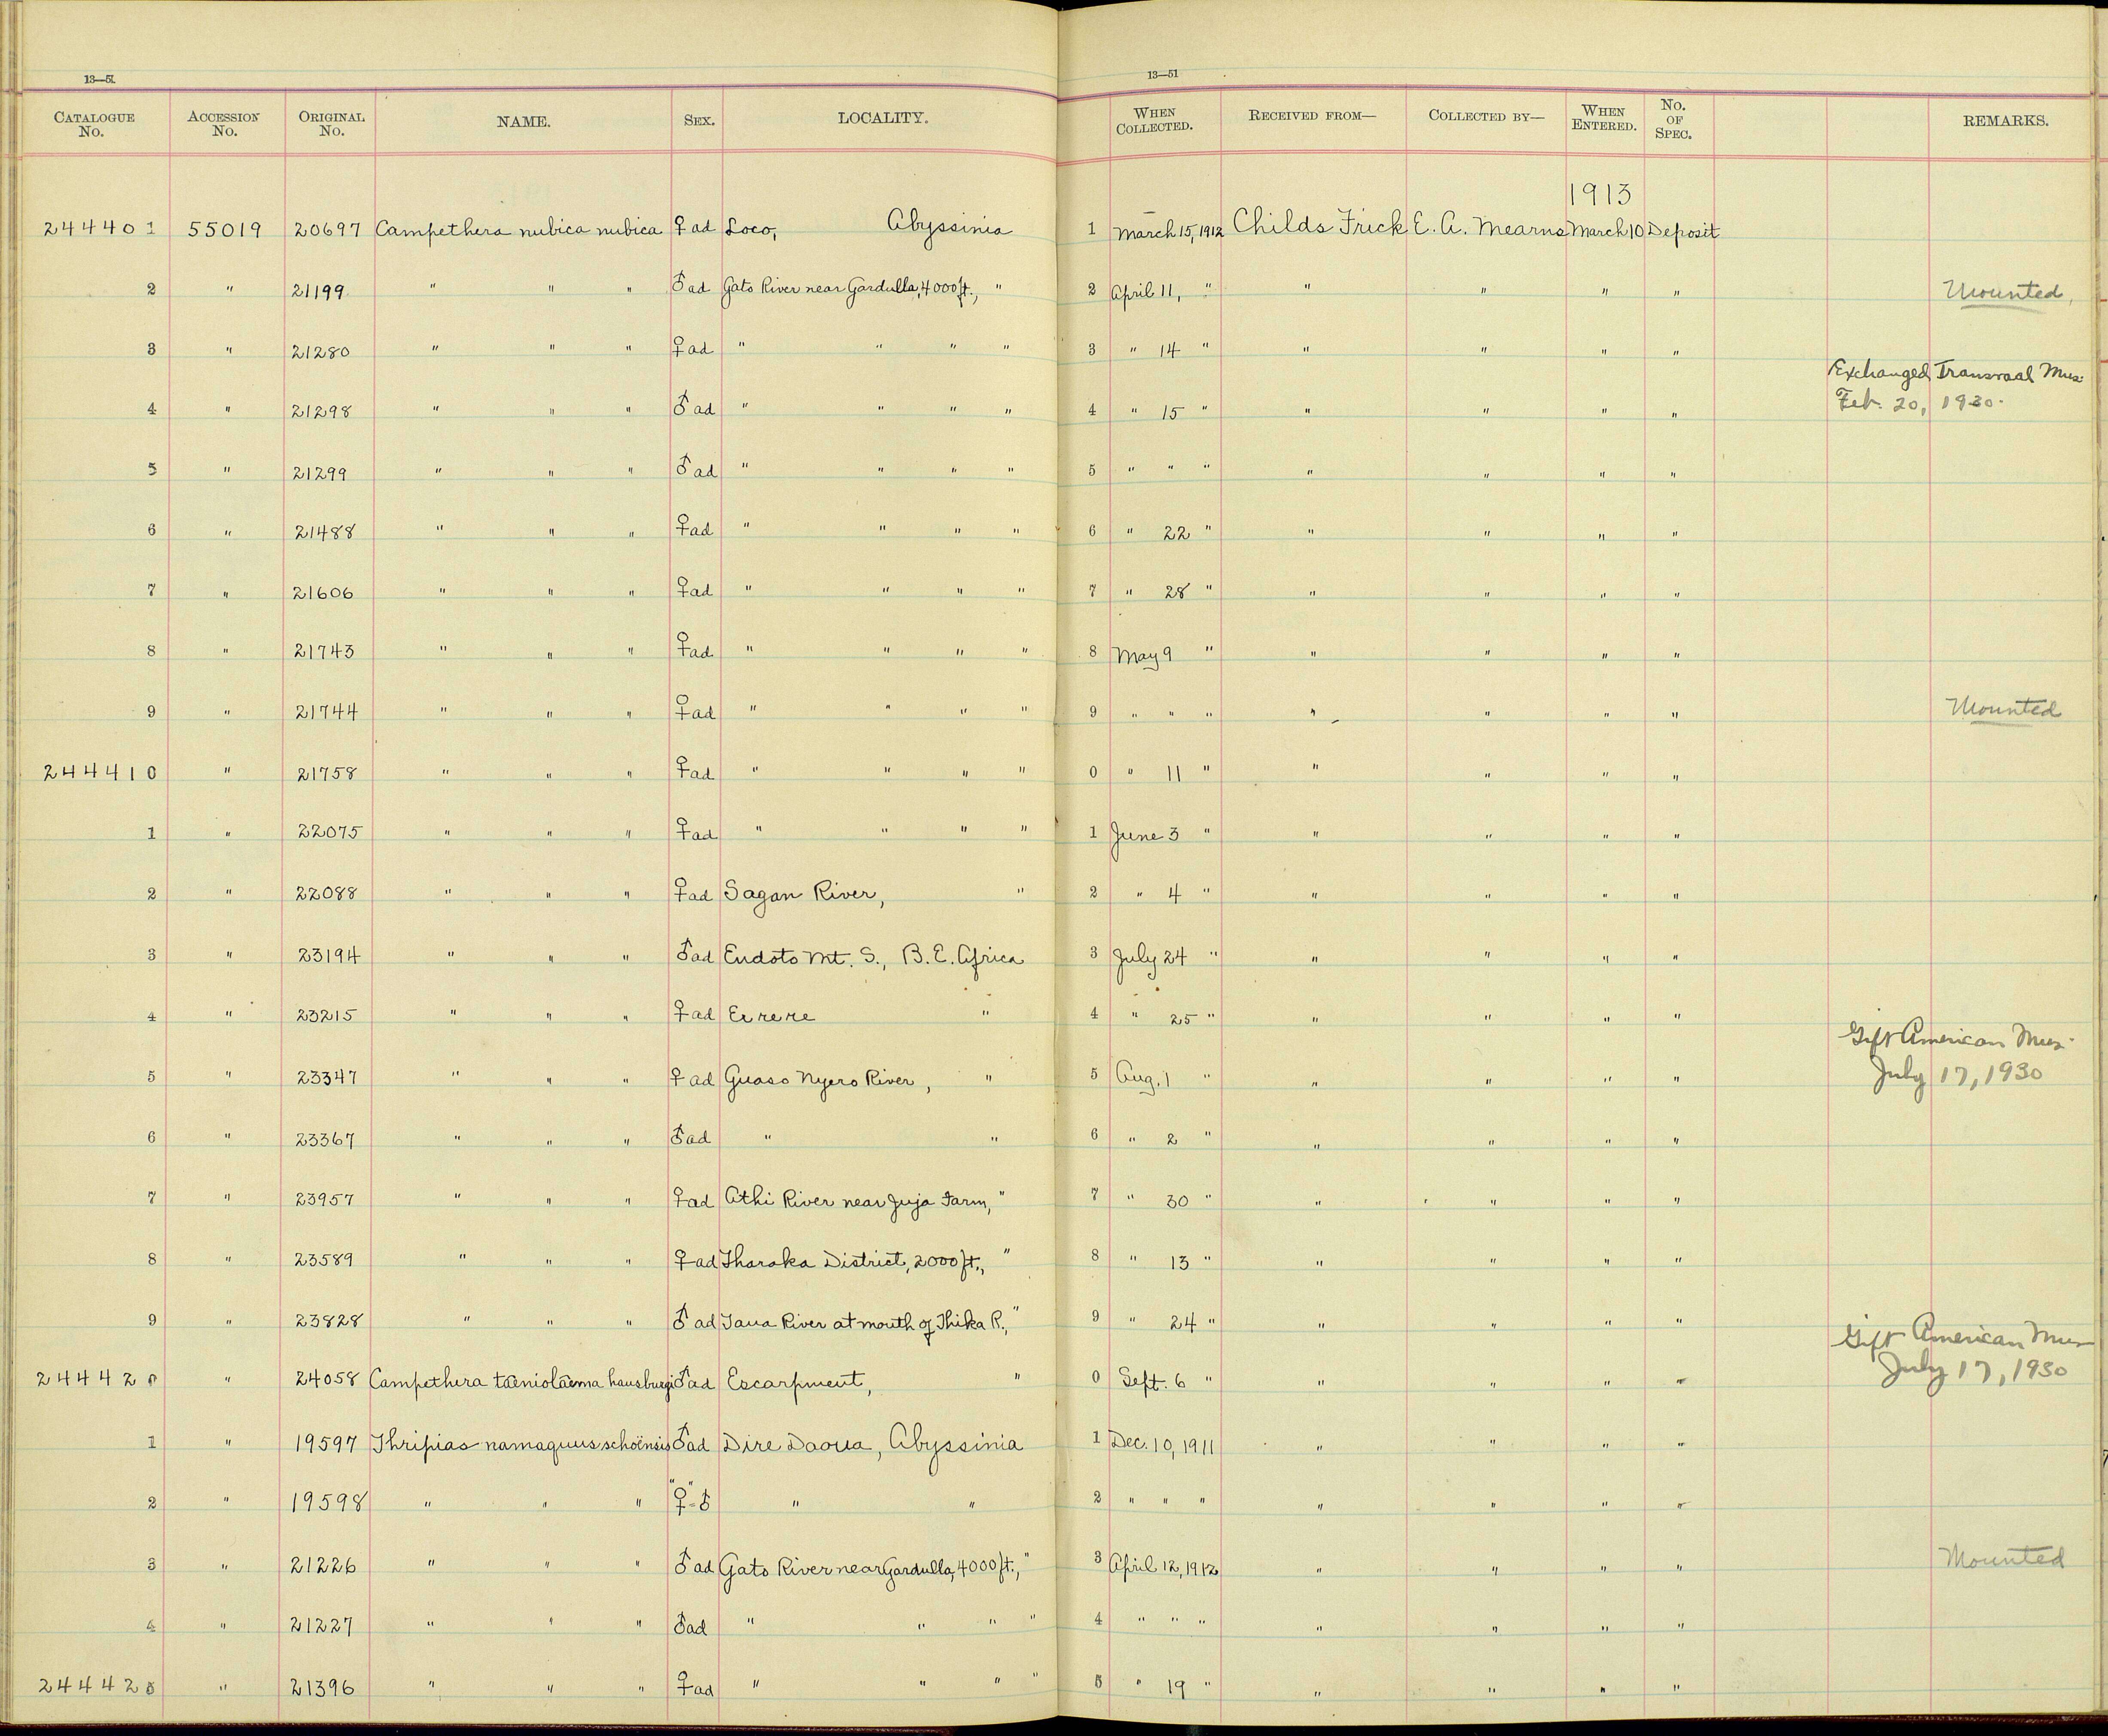 13—51 13—51
CATALOGUE No. ACCESSION No. ORIGINAL No. NAME. SEX. LOCALITY. WHEN COLLECTED. RECEIVED FROM— COLLECTED BY— WHEN ENTERED. No. OF SPEC. REMARKS.
1913
244401 55019 20697 Campethera nubica nubica ♀ ad Loco, Abyssinia 1 March 15, 1912 Childs Frick E. A. Mearns March 10 Deposit
2 " 21199 " " " ♂ ad Gato River near Gardulla, 4000 ft., " 2 April 11, " " " " " Mounted
3 " 21280 " " " ♀ ad " " " " 3 " 14 " " " " "
Exchanged Transvaal Mus.
4 " 21298 " " " ♂ ad " " " " 4 " 15 " " " " " Feb. 20, 1930.
5 " 21299 " " " ♂ ad " " " " 5 " " " " " " "
6 " 21488 " " " ♀ ad " " " " 6 " 22 " " " " "
7 " 21606 " " " ♀ ad " " " " 7 " 28 " " " " "
8 " 21743 " " " ♀ ad " " " " 8 May 9 " " " " "
9 " 21744 " " " ♀ ad " " " " 9 " " " " " " " Mounted
244410 " 21758 " " " ♀ ad " " " " 0 " 11 " " " " "
1 " 22075 " " " ♀ ad " " " " 1 June 3 " " " " "
2 " 22088 " " " ♀ ad Sagon River, " 2 " 4 " " " " "
3 " 23194 " " " ♂ ad Endoto Mt. S., B. E. Africa 3 July 24 " " " " "
4 " 23215 " " " ♀ ad Er re re " 4 " 25 " " " " "
Gift American Mus.
5 " 23347 " " " ♀ ad Guaso Nyero River, " 5 Aug. 1 " " " " " July 17, 1930
6 " 23367 " " " ♂ ad " " 6 " 2 " " " " "
7 " 23957 " " " ♀ ad Athi River near Juja Farm, " 7 " 30 " " " " "
8 " 23589 " " " ♀ ad Tharaka District, 2000 ft., " 8 " 13 " " " " "
9 " 23828 " " " ♂ ad Tana River at mouth of Thika R., " 9 " 24 " " " " "
Gift American Mus
244420 " 24058 Campethera tæniolæma hausburgi ♂ ad Escarpment, " 0 Sept. 6 " " " " " July 17, 1930
1 " 19597 Thripias namaquus schoënsis ♂ ad Dire Daoua, Abyssinia 1 Dec. 10, 1911 " " " "
2 " 19598 " " " "♀"=♂ " " 2 " " " " " " "
3 " 21226 " " " ♂ ad Gato River near Gardulla, 4000 ft., " 3 April 12, 1912 " " " " Mounted
4 " 21227 " " " ♂ ad " " " " 4 " " " " " " "
244425 " 21396 " " " ♀ ad " " " " 5 " 19 " " " " "